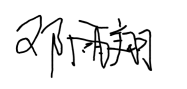 邓雨翔